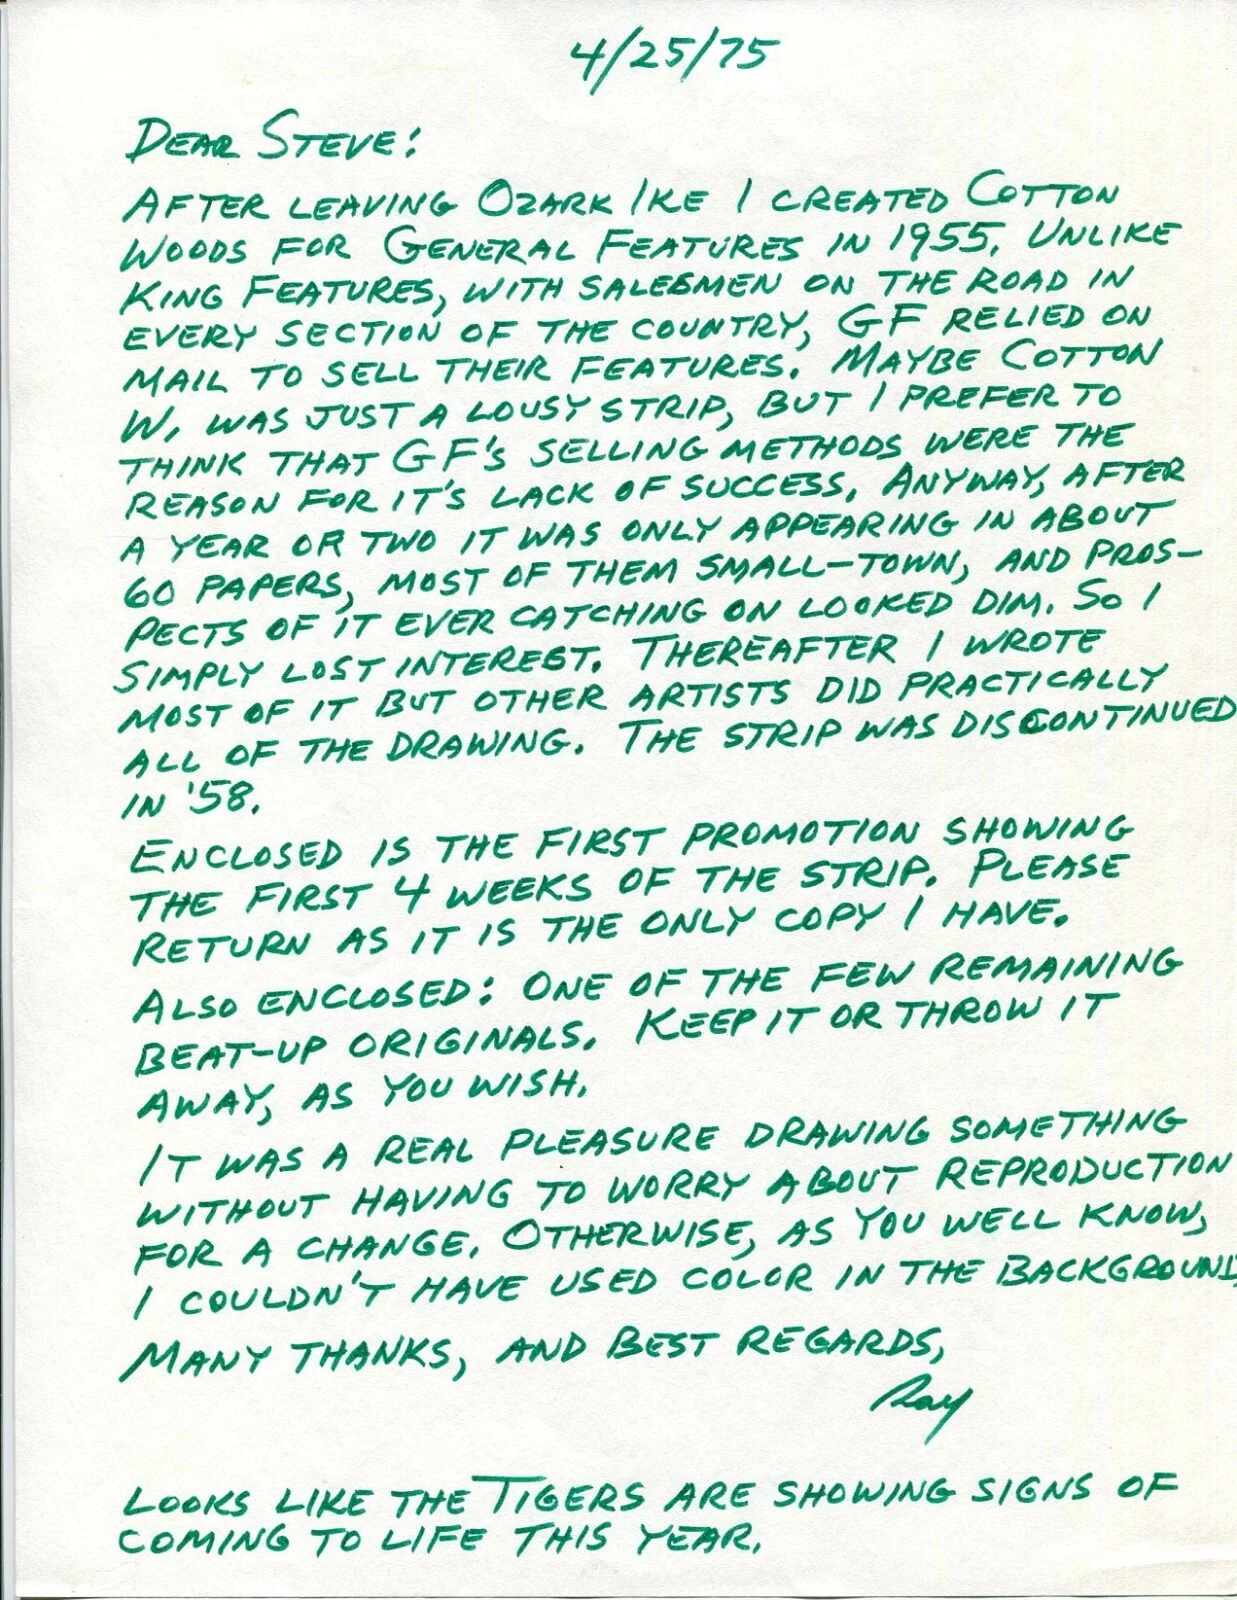 4/25/75
DEAR STEVE:
AFTER LEAVING OZARK IKE I CREATED COTTON
WOODS FOR GENERAL FEATURES IN 1955. UNLIKE
KING FEATURES, WITH SALESMEN ON THE ROAD IN
EVERY SECTION OF THE COUNTRY, GF RELIED ON
MAIL TO SELL THEIR FEATURES. MAYBE COTTON
W. WAS JUST A LOUSY STRIP, BUT I PREFER TO
THINK THAT GF'S SELLING METHODS WERE THE
REASON FOR IT'S LACK OF SUCCESS. ANYWAY, AFTER
A YEAR OR TWO IT WAS ONLY APPEARING IN ABOUT
60 PAPERS, MOST OF THEM SMALL-TOWN, AND PROS-
PECTS OF IT EVER CATCHING ON LOOKED DIM. SO I
SIMPLY LOST INTEREST. THEREAFTER I WROTE
MOST OF IT BUT OTHER ARTISTS DID PRACTICALLY
ALL OF THE DRAWING. THE STRIP WAS DISCONTINUED
IN '58.
ENCLOSED IS THE FIRST PROMOTION SHOWING
THE FIRST 4 WEEKS OF THE STRIP. PLEASE
RETURN AS IT IS THE ONLY COPY I HAVE.
ALSO ENCLOSED: ONE OF THE FEW REMAINING
BEAT-UP ORIGINALS. KEEP IT OR THROW IT
AWAY, AS YOU WISH.
IT WAS A REAL PLEASURE DRAWING SOMETHING
WITHOUT HAVING TO WORRY ABOUT REPRODUCTION
FOR A CHANGE. OTHERWISE, AS YOU WELL KNOW,
I COULDN'T HAVE USED COLOR IN THE BACKGROUND.
MANY THANKS, AND BEST REGARDS,
Ray
LOOKS LIKE THE TIGERS ARE SHOWING SIGNS OF
COMING TO LIFE THIS YEAR.